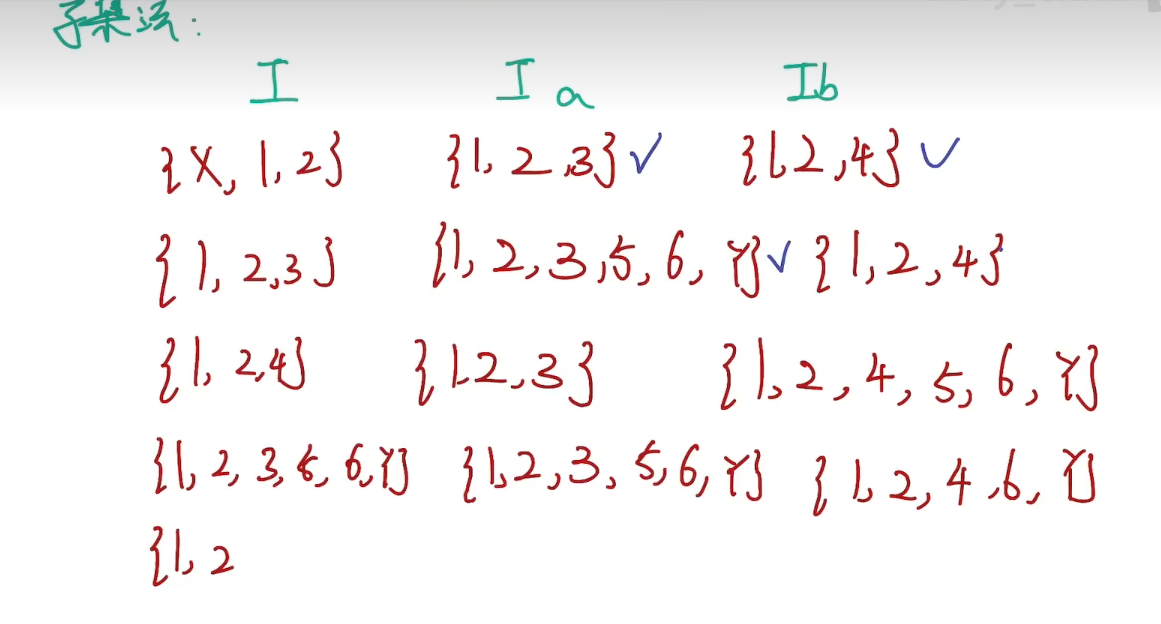 子集法:
I Ia Ib
{X, 1, 2} {1, 2, 3} ✓ {1, 2, 4} ✓
{1, 2, 3} {1, 2, 3, 5, 6, Y} ✓ {1, 2, 4}
{1, 2, 4} {1, 2, 3} {1, 2, 4, 5, 6, Y}
{1, 2, 3, 5, 6, Y} {1, 2, 3, 5, 6, Y} {1, 2, 4, 6, Y}
{1, 2